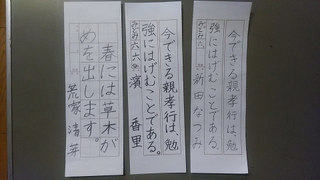 今できる親孝行は、勉
強にはげむことである。
新田なつみ
今できる親孝行は、勉
強にはげむことである。
濱 香里
春には草木が
めを出します。
荒家 清芽